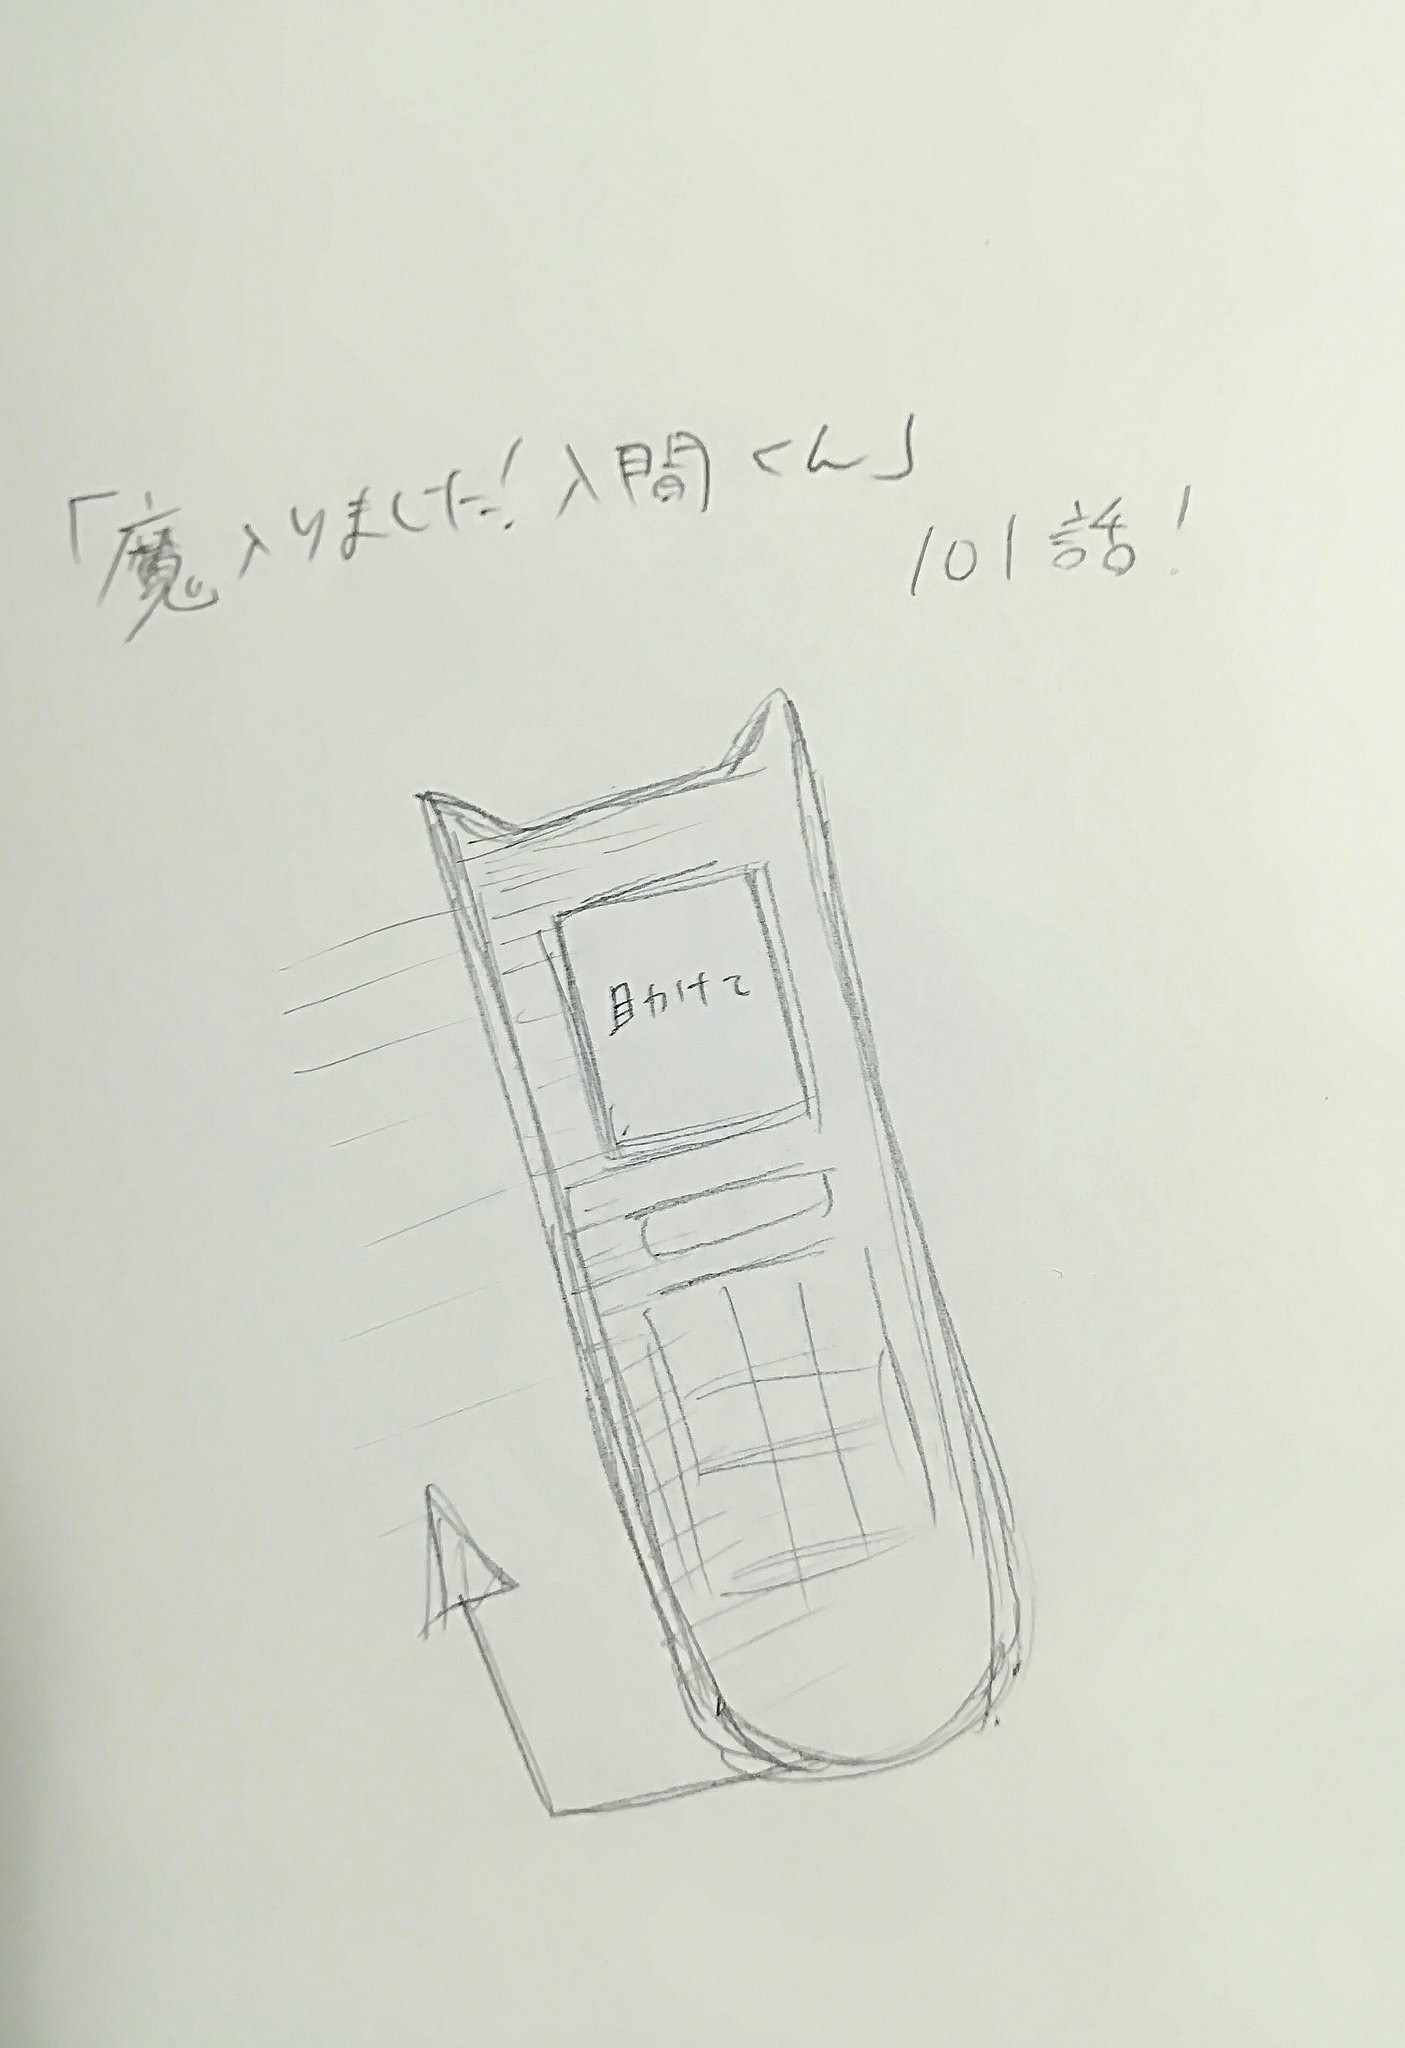 「魔入りました!入間くん」
101話!
助けて